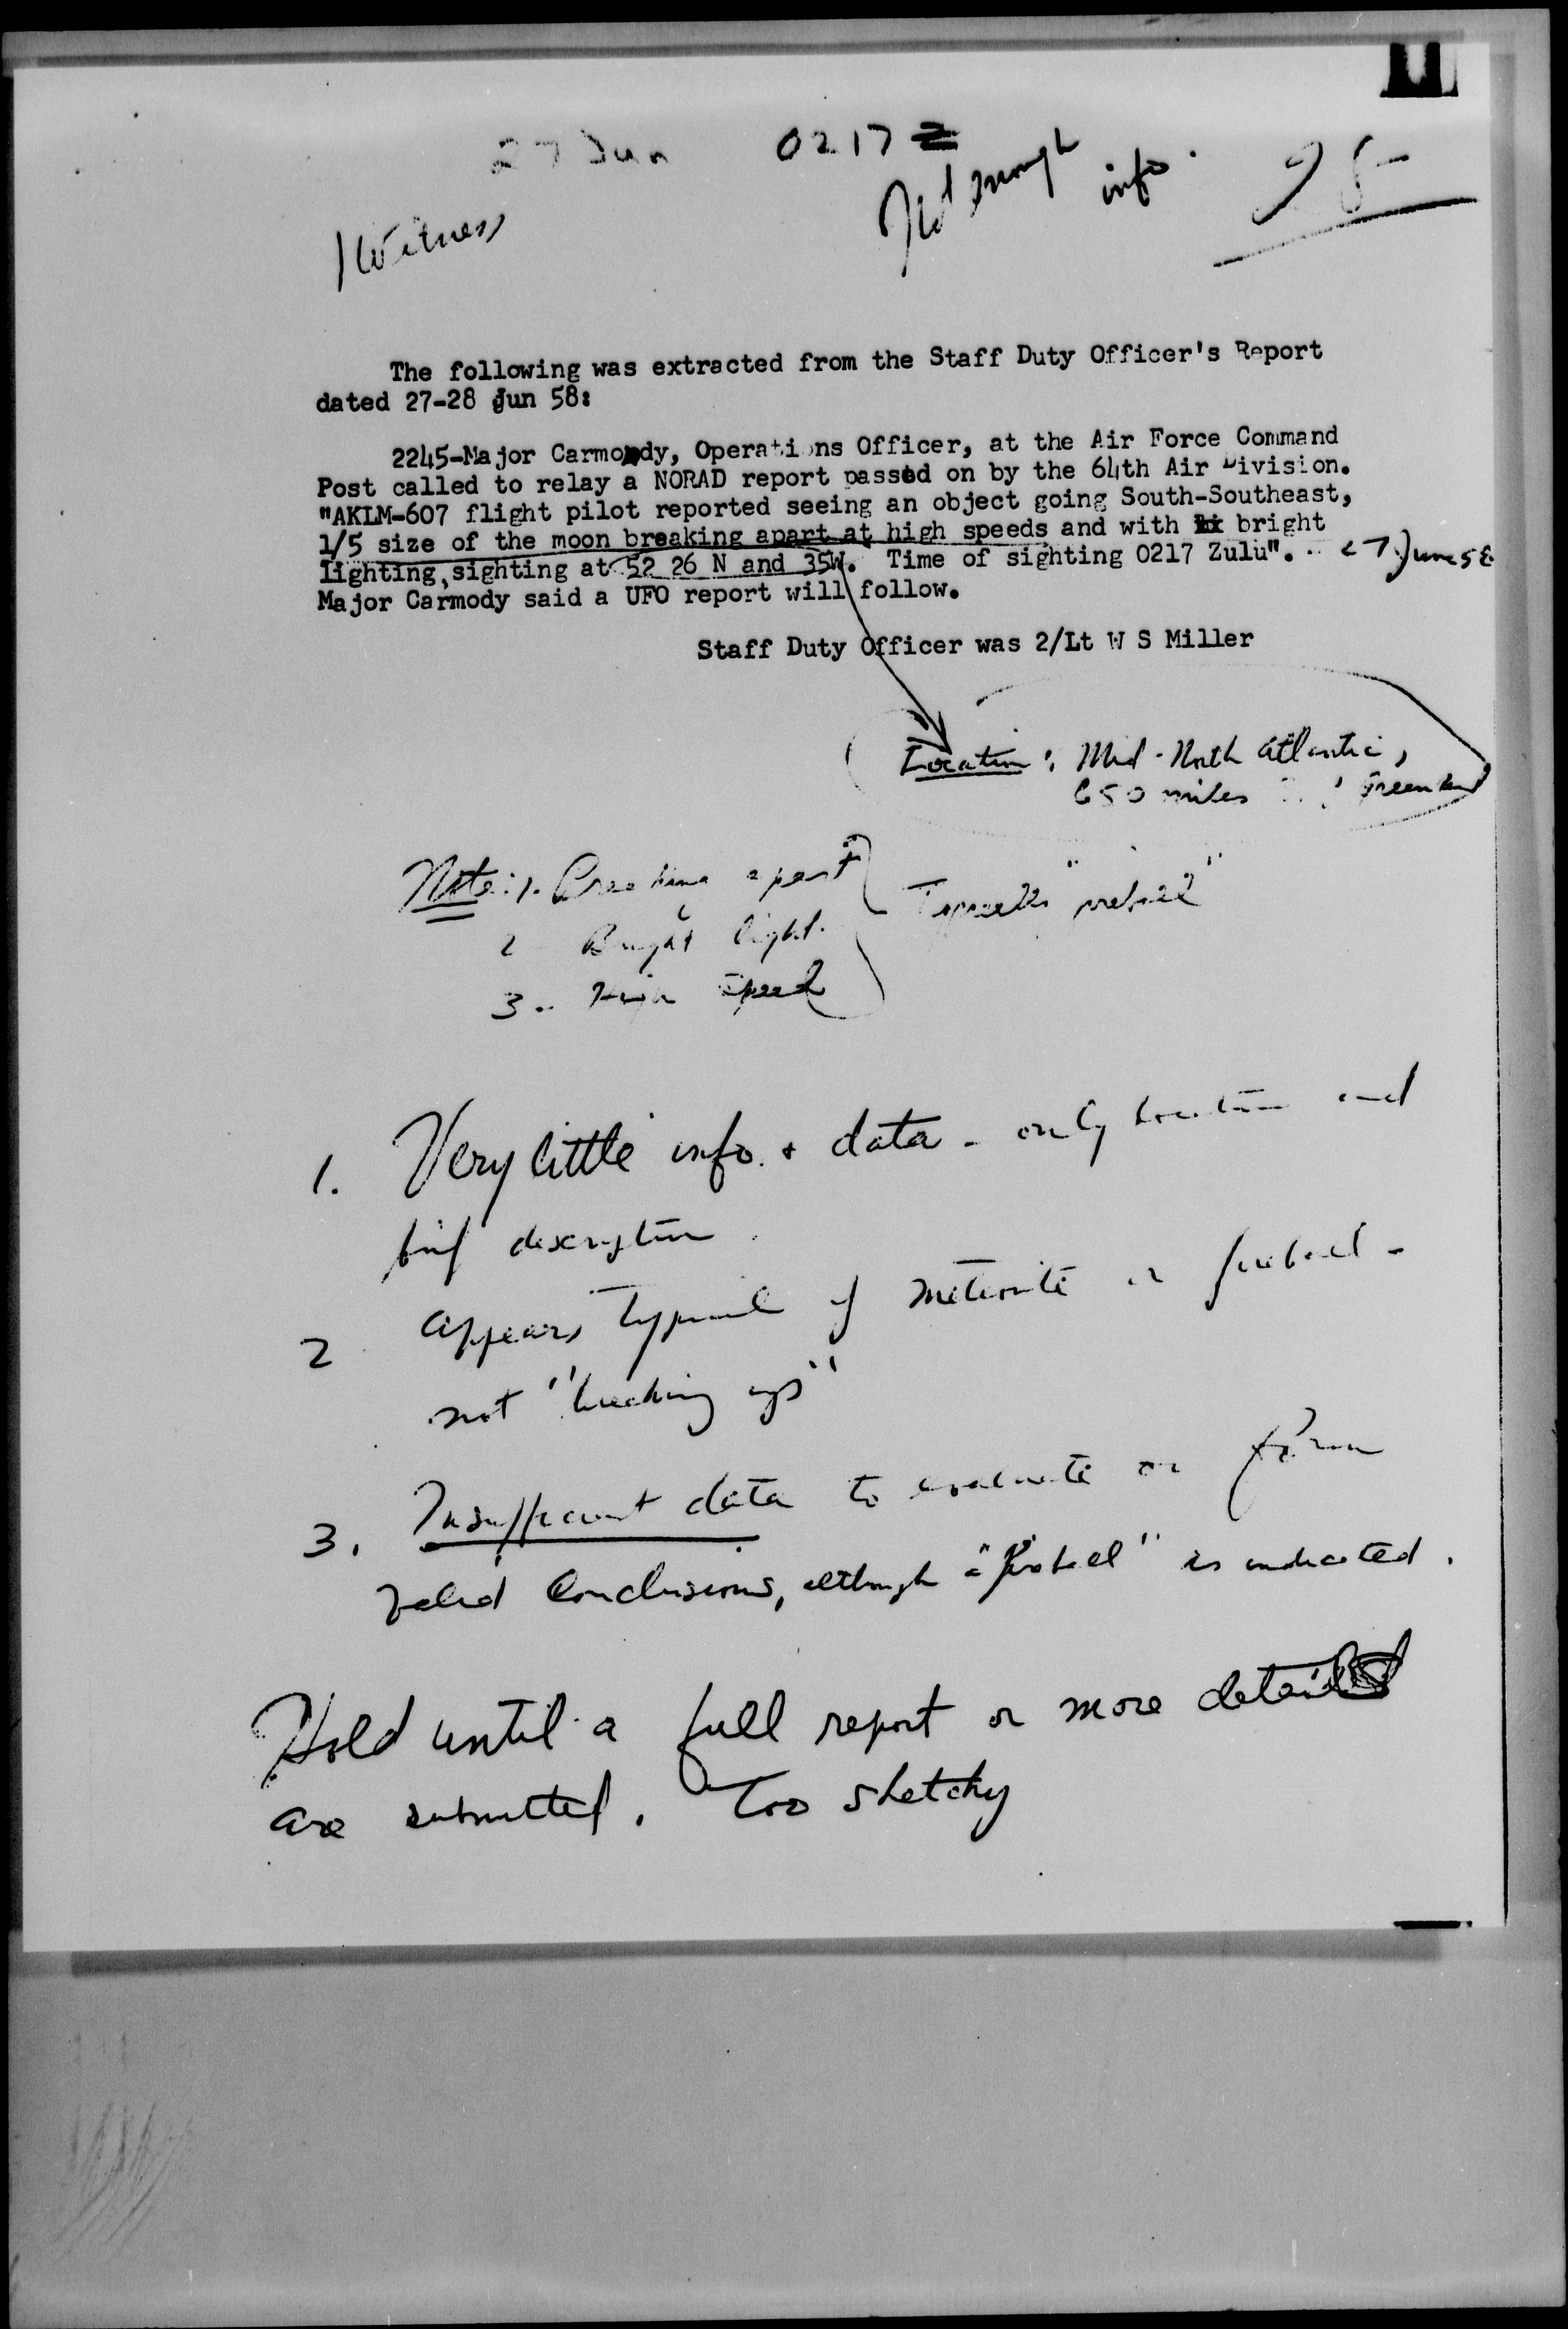 27 Jun 0217 Z
Not enough info.
1 Witness
The following was extracted from the Staff Duty Officer's Report
dated 27-28 Jun 58:
2245-Major Carmody, Operations Officer, at the Air Force Command
Post called to relay a NORAD report passed on by the 64th Air Division.
"AKLM-607 flight pilot reported seeing an object going South-Southeast,
1/5 size of the moon breaking apart at high speeds and with bright
lighting, sighting at 52 26 N and 35W. Time of sighting 0217 Zulu". 27 June 58
Major Carmody said a UFO report will follow.
Staff Duty Officer was 2/Lt W S Miller
Location: Mid-North Atlantic,
650 miles Greenland
Note: 1. Breaking apart
2 Bright light.
3. High speed
1. Very little info. + data - only location and
brief description.
2 Appears typical of meteorite or fireball -
not "breaking up"
3. Insufficient data to evaluate or form
valid conclusions, although a "fireball" is indicated.
Hold until a full report or more details
are submitted. Too sketchy